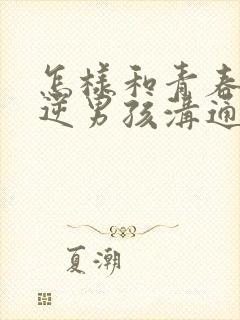 怎樣和青春
逆男孩溝通
夏潮